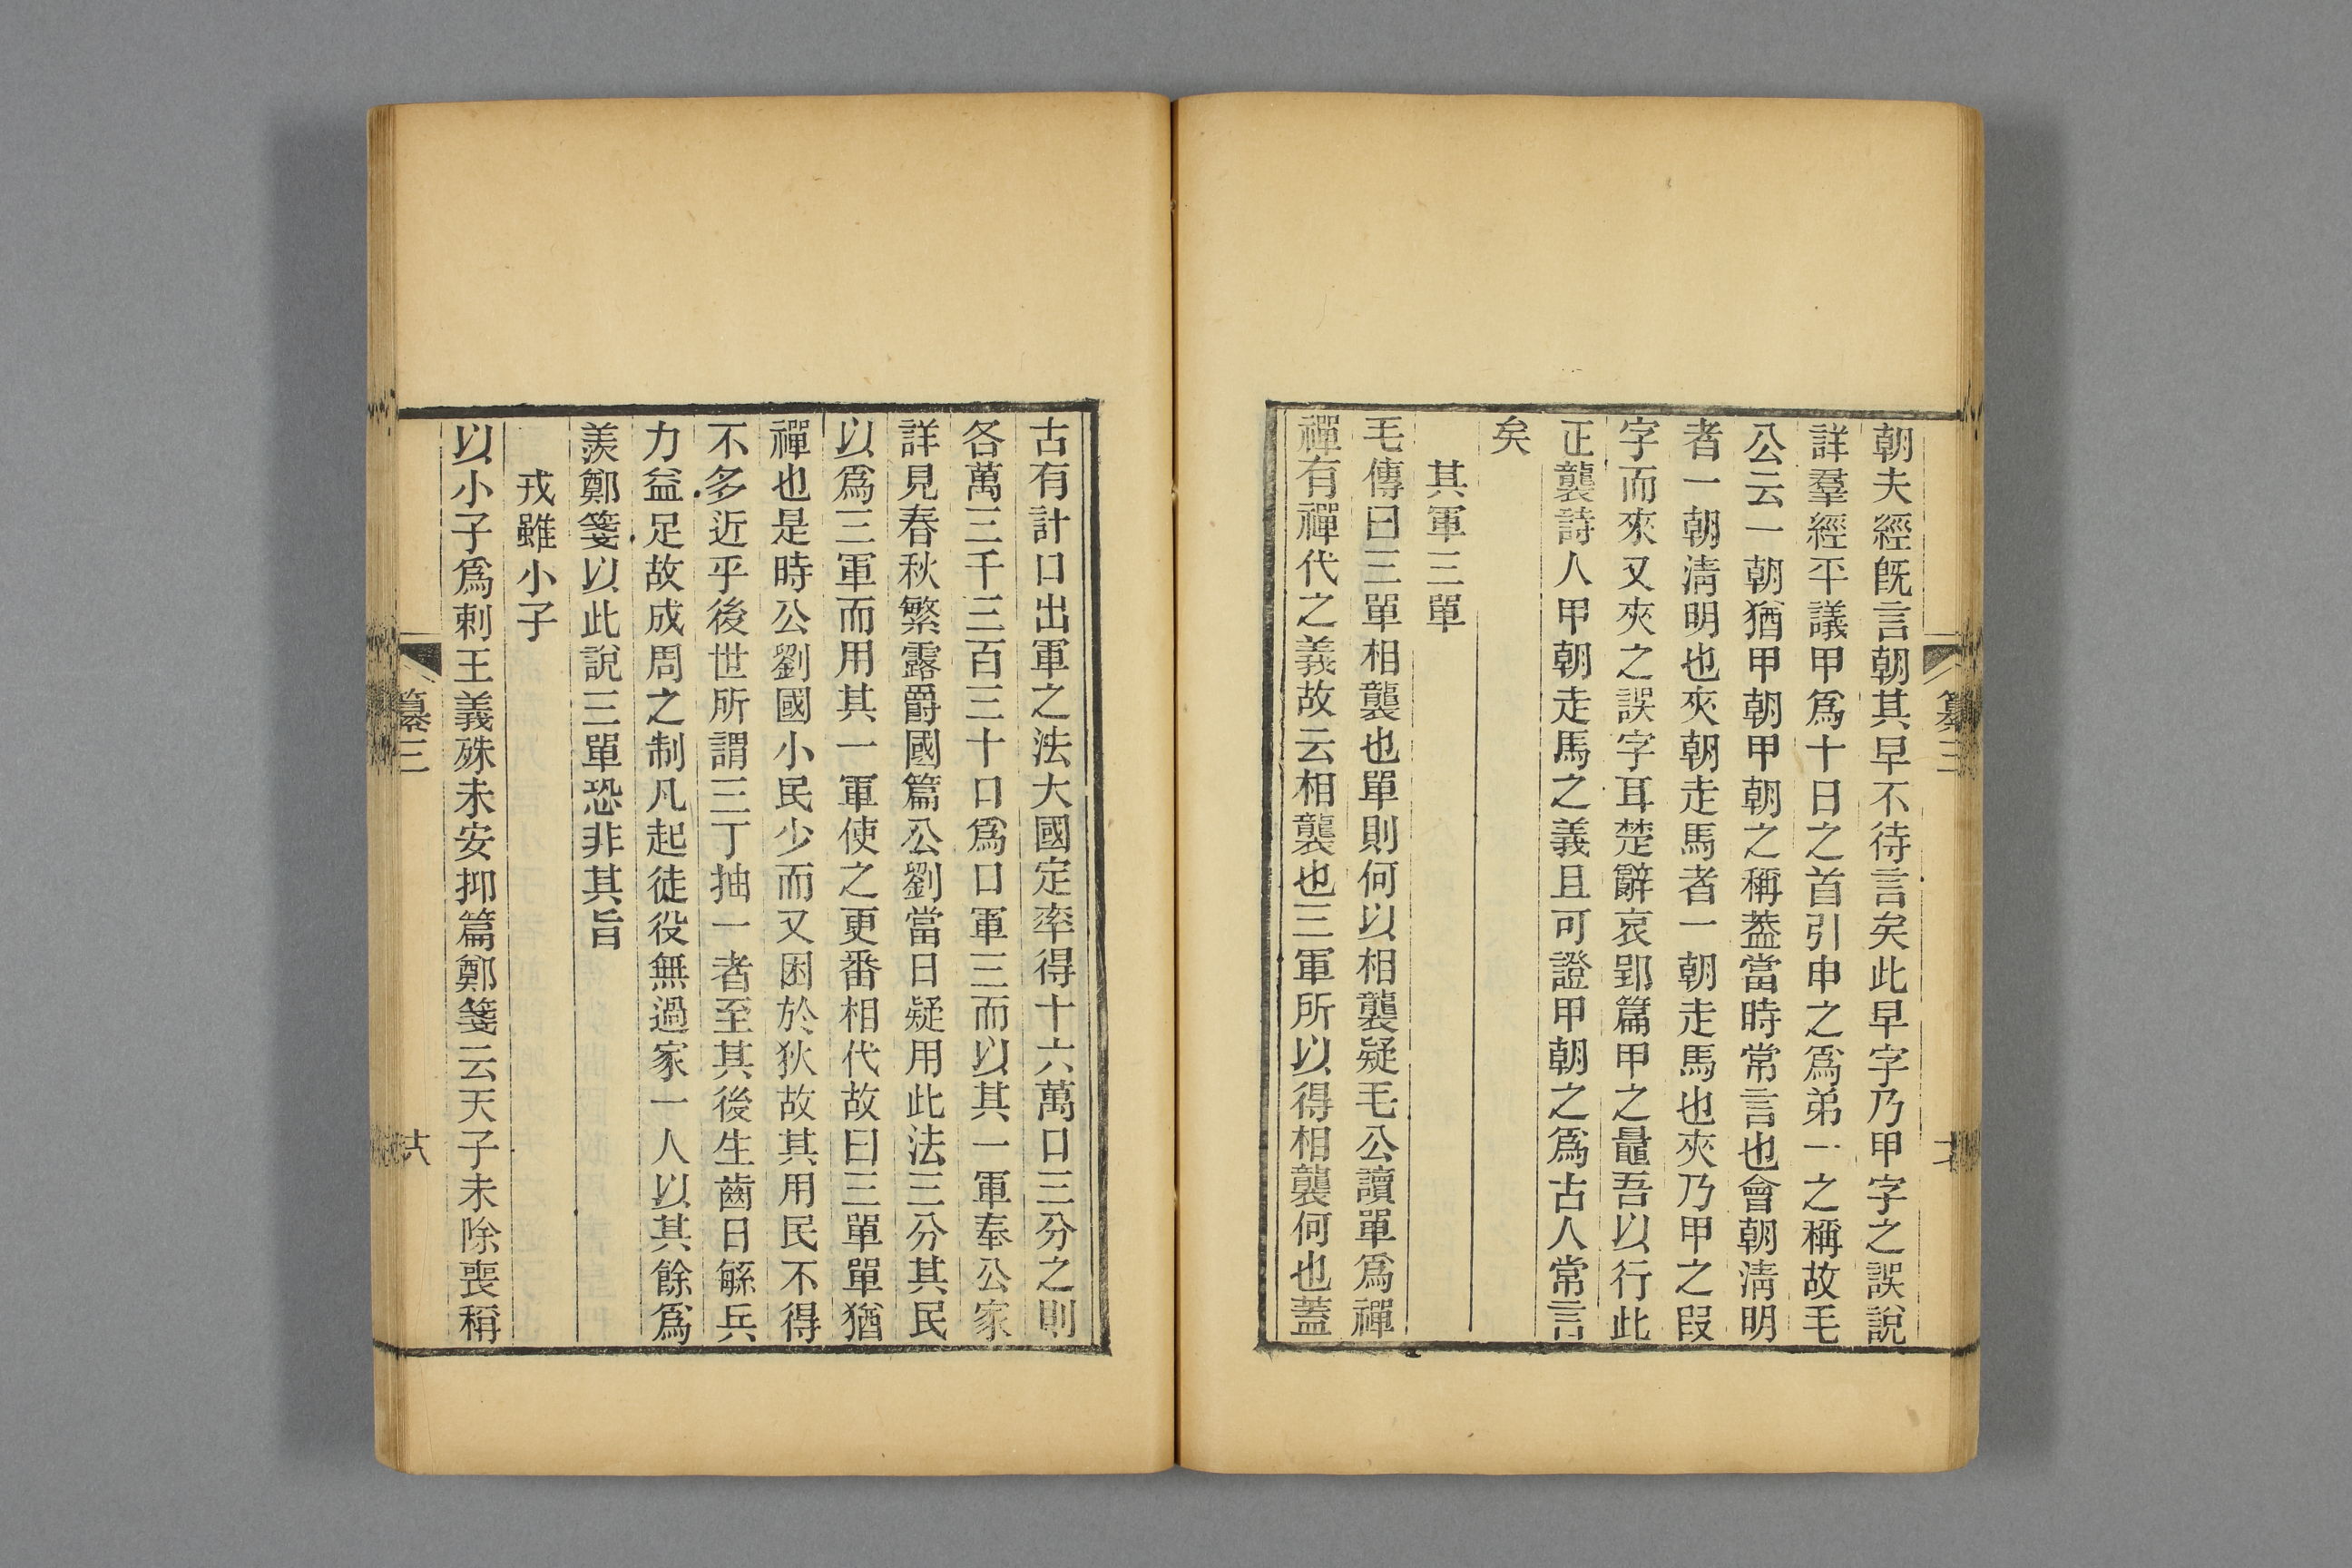 朝夫經旣言朝其早不待言矣此早字乃甲字之誤說
詳羣經平議甲爲十日之首引申之爲弟一之稱故毛
公云一朝猶甲朝甲朝之稱葢當時常言也會朝淸明
者一朝淸明也夾朝走馬者一朝走馬也夾乃甲之叚
字而來又夾之誤字耳楚辭哀郢篇甲之鼂吾以行此
正襲詩人甲朝走馬之義且可證甲朝之爲古人常言
矣
其軍三單
毛傳曰三單相襲也單則何以相襲疑毛公讀單爲禪
禪有禪代之義故云相襲也三軍所以得相襲何也蓋
纂三
古有計口出軍之法大國定率得十六萬口三分之則
各萬三千三百三十口爲口軍三而以其一軍奉公家
詳見春秋繁露爵國篇公劉當日疑用此法三分其民
以爲三軍而用其一軍使之更番相代故曰三單單猶
禪也是時公劉國小民少而又困於狄故其用民不得
不多近乎後世所謂三丁抽一者至其後生齒日緐兵
力益足故成周之制凡起徒役無過家一人以其餘爲
羨鄭箋以此說三單恐非其旨
戎雖小子
以小子爲刺王義殊未安抑篇鄭箋云天子未除喪稱
纂三
六